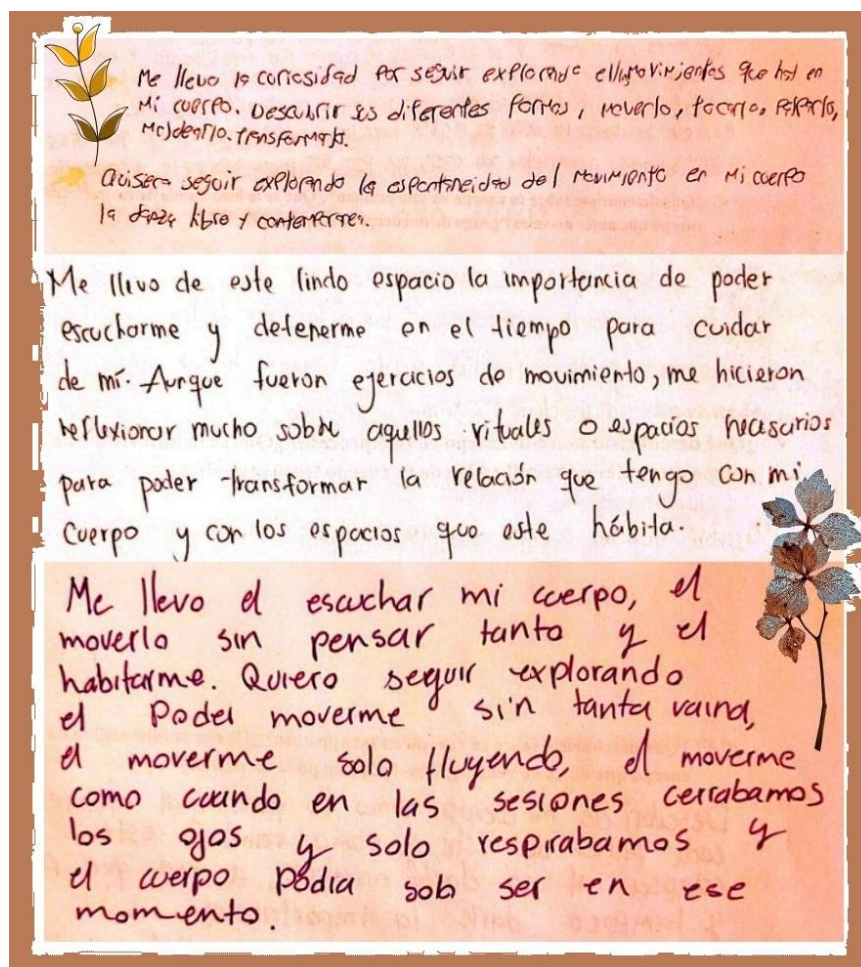 Me llevo la curiosidad por seguir explorando movimientos que hay en
mi cuerpo. Descubrir sus diferentes formas, moverlo, tocarlo,
Moldearlo. transformarlo.
Quisera seguir explorando la espontaneidad del movimiento en mi cuerpo
la danza libre y contemporanea.
Me llevo de este lindo espacio la importancia de poder
escucharme y detenerme en el tiempo para cuidar
de mí. Aunque fueron ejercicios de movimiento, me hicieron
reflexionar mucho sobre aquellos rituales o espacios necesarios
para poder transformar la relación que tengo con mi
cuerpo y con los espacios que este hábita.
Me llevo el escuchar mi cuerpo, el
moverlo sin pensar tanto y el
habitarme. Quiero seguir explorando
el Poder moverme sin tanta vaina,
el moverme solo fluyendo, el moverme
como cuando en las sesiones cerrabamos
los ojos y solo respirabamos y
el cuerpo podia solo ser en ese
momento.